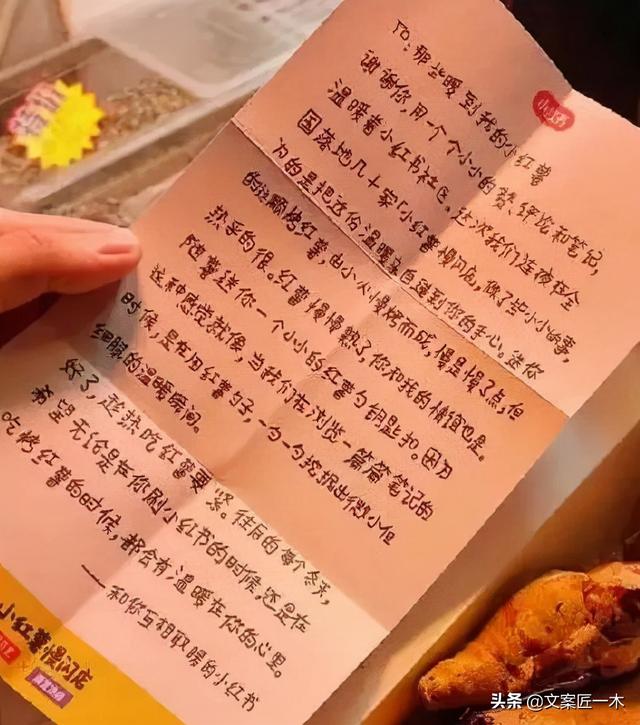 小红书
TO：那些暖到我的小红薯
谢谢你，用一个个小小的赞、评论和笔记，
温暖着小红书社区。这次我们连夜在全
国落地几十家「小红薯慢闪店」，做了些小小的事，
为的是把这份温暖亲自递到你的手心。送你
的这颗烤红薯，由小火慢烤而成，慢是慢了点，但
热乎的很。红薯慢慢熟了，你和我的情谊也是。
随薯送你一个小小的红薯勺钥匙扣。因为
这种感觉就像，当我们在浏览一篇篇笔记的
时候，是在用红薯勺子，一勺一勺挖掘出微小但
细腻的温暖瞬间。
好了，趁热吃红薯要紧。往后的每个冬天，
希望无论是在你刷小红书的时候，还是在
吃烤红薯的时候，都会有温暖在你的心里。
——和你互相取暖的小红书
小红薯慢闪店
头条 @文案匠一木